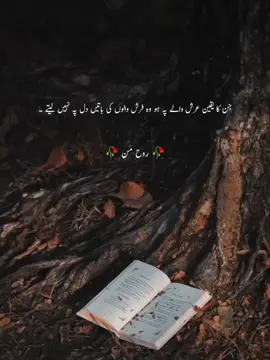 جن کا یقین عرش والے پہ ہو وہ فرش والوں کی باتیں دل پہ نہیں لیتے ۔
🥀 روحِ من 🥀